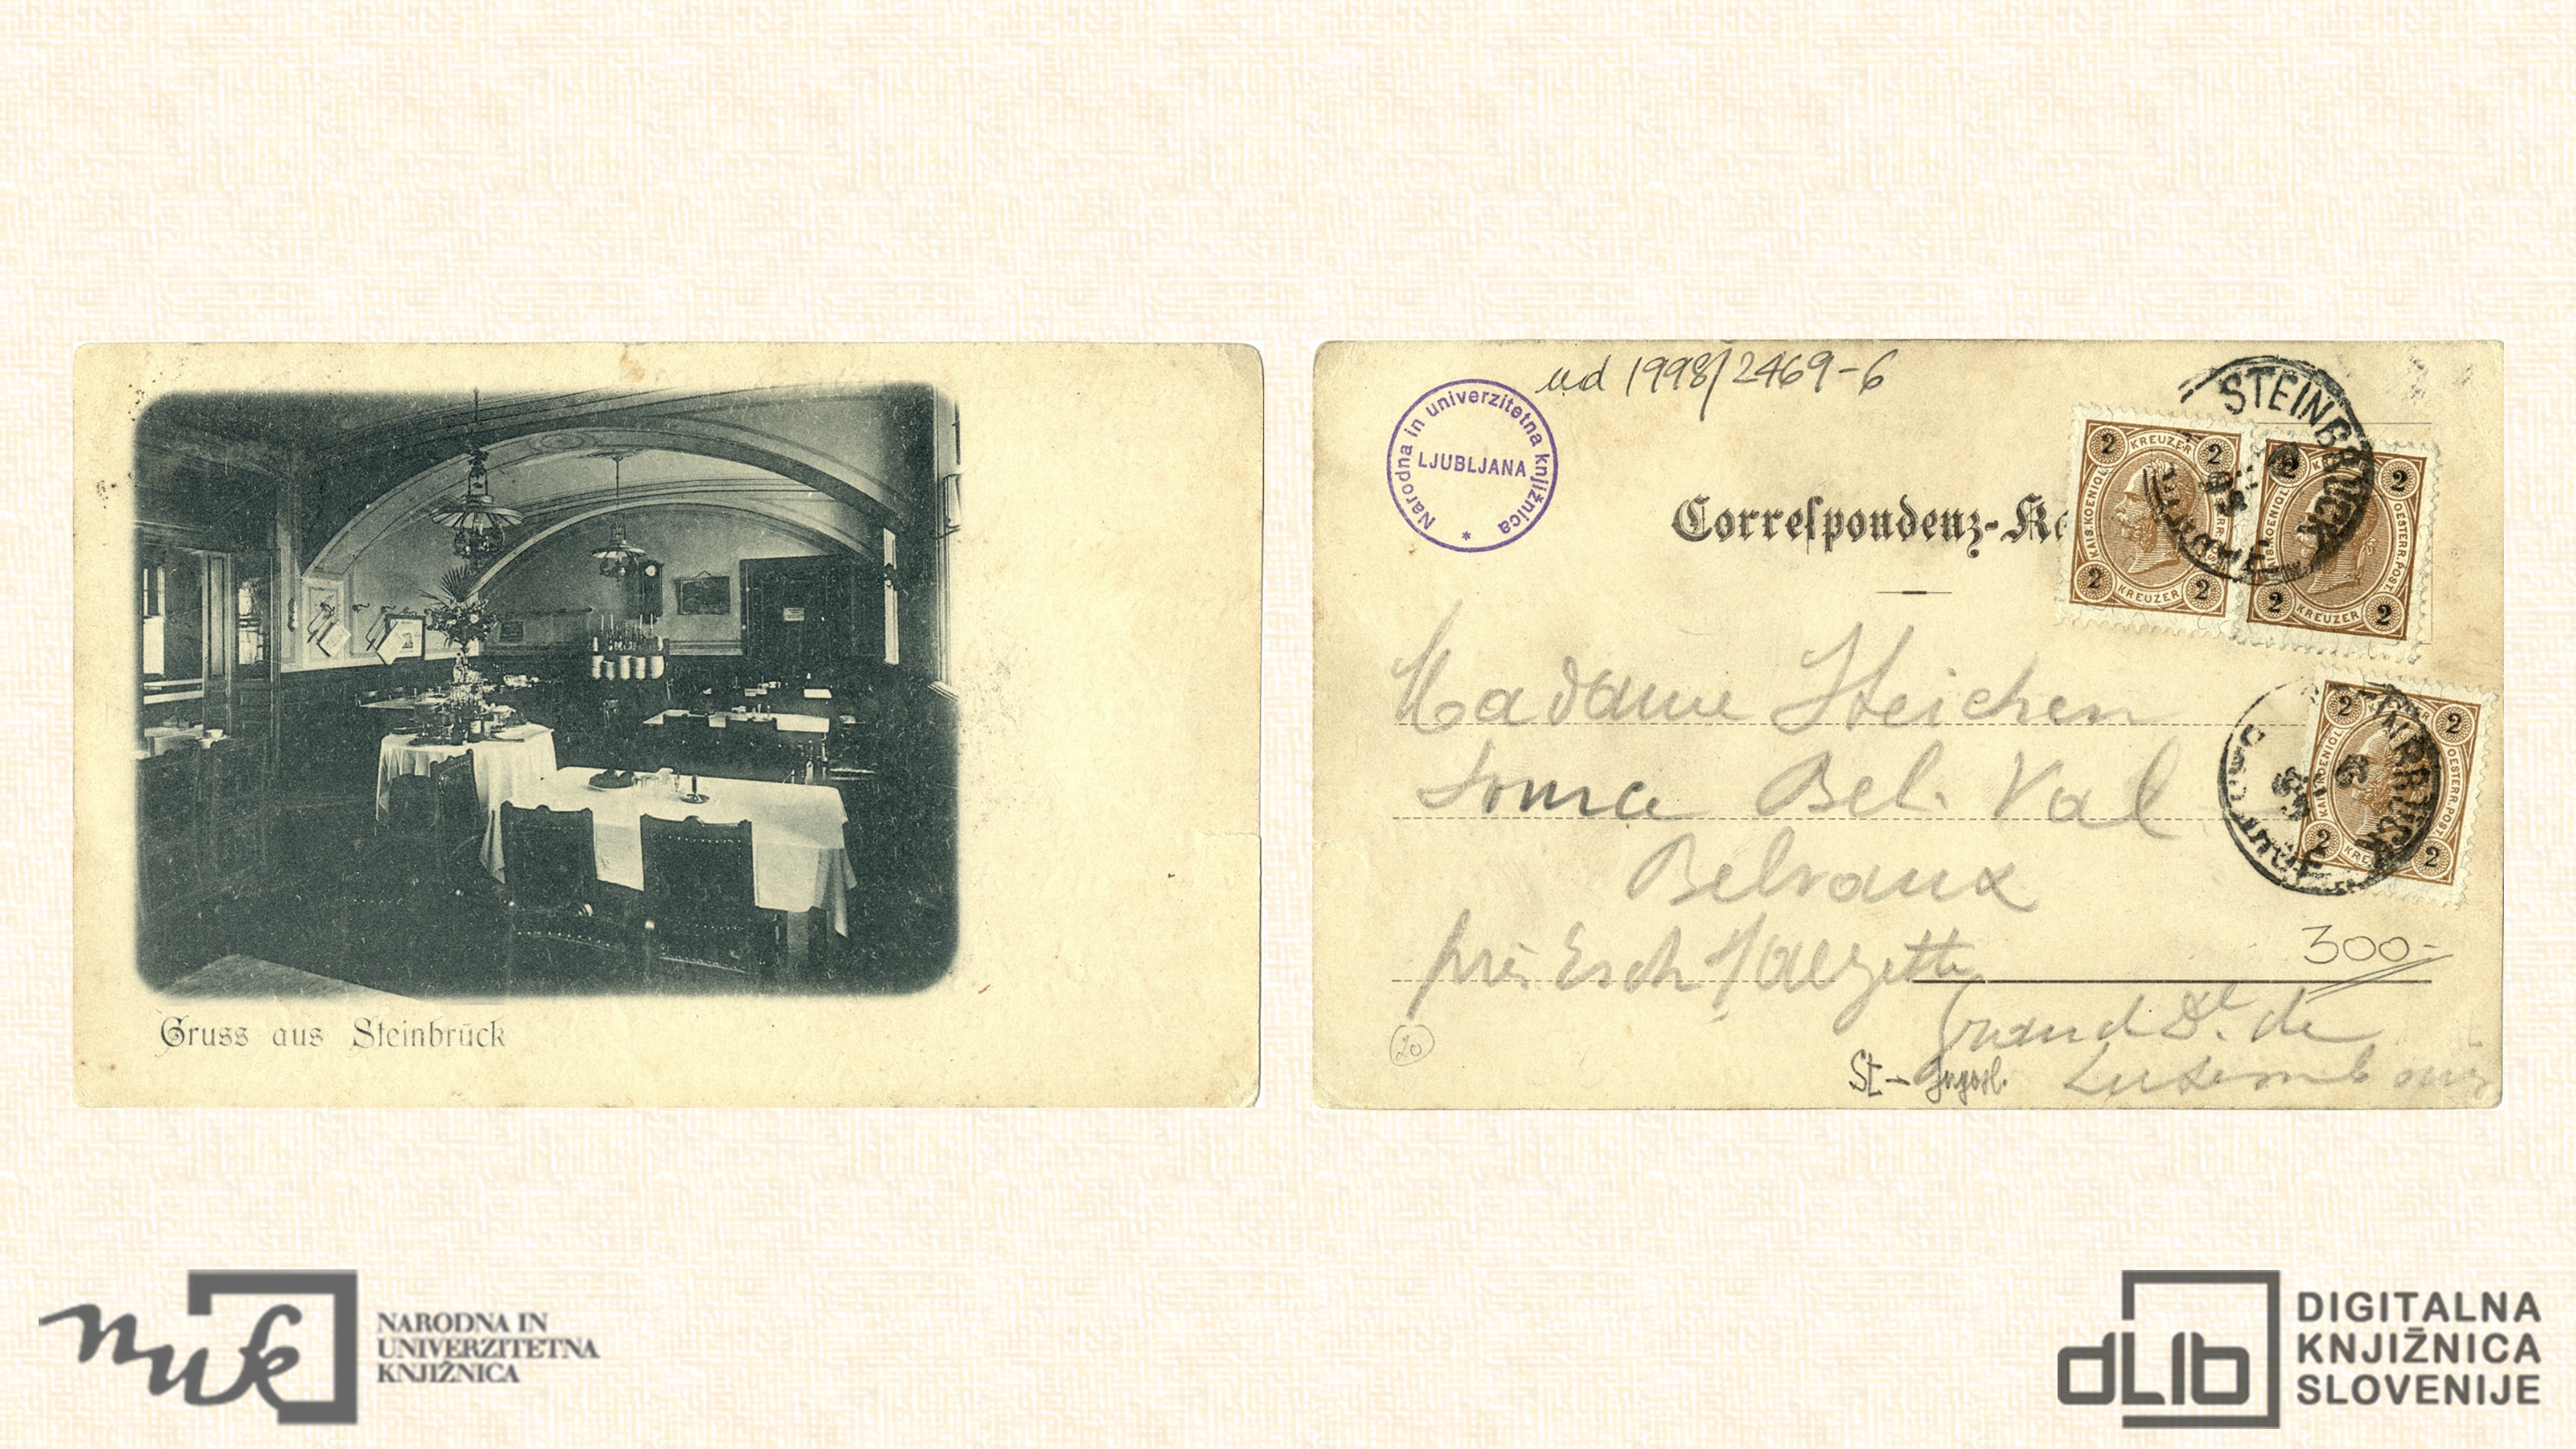 Gruss aus Steinbrück
ud 1998/2469-6
Narodna in univerzitetna knjižnica
LJUBLJANA
Correspondenz-Ka
STEINBRÜCK
2 KREUZER 2
KAIS. KOENIGL. OESTERR. POST.
2 KREUZER 2
2 KREUZER 2
KAIS. KOENIGL. OESTERR. POST.
2 KREUZER 2
2 2
KAIS. KOENIGL. OESTERR. POST.
2 2
Madame Steichen
Bel Val
Belvaux
près Esch s/Alzette
300.-
Grand D. de
Luxembourg
20
St-
NARODNA IN
UNIVERZITETNA
KNJIŽNICA
nuk
dLib
DIGITALNA
KNJIŽNICA
SLOVENIJE